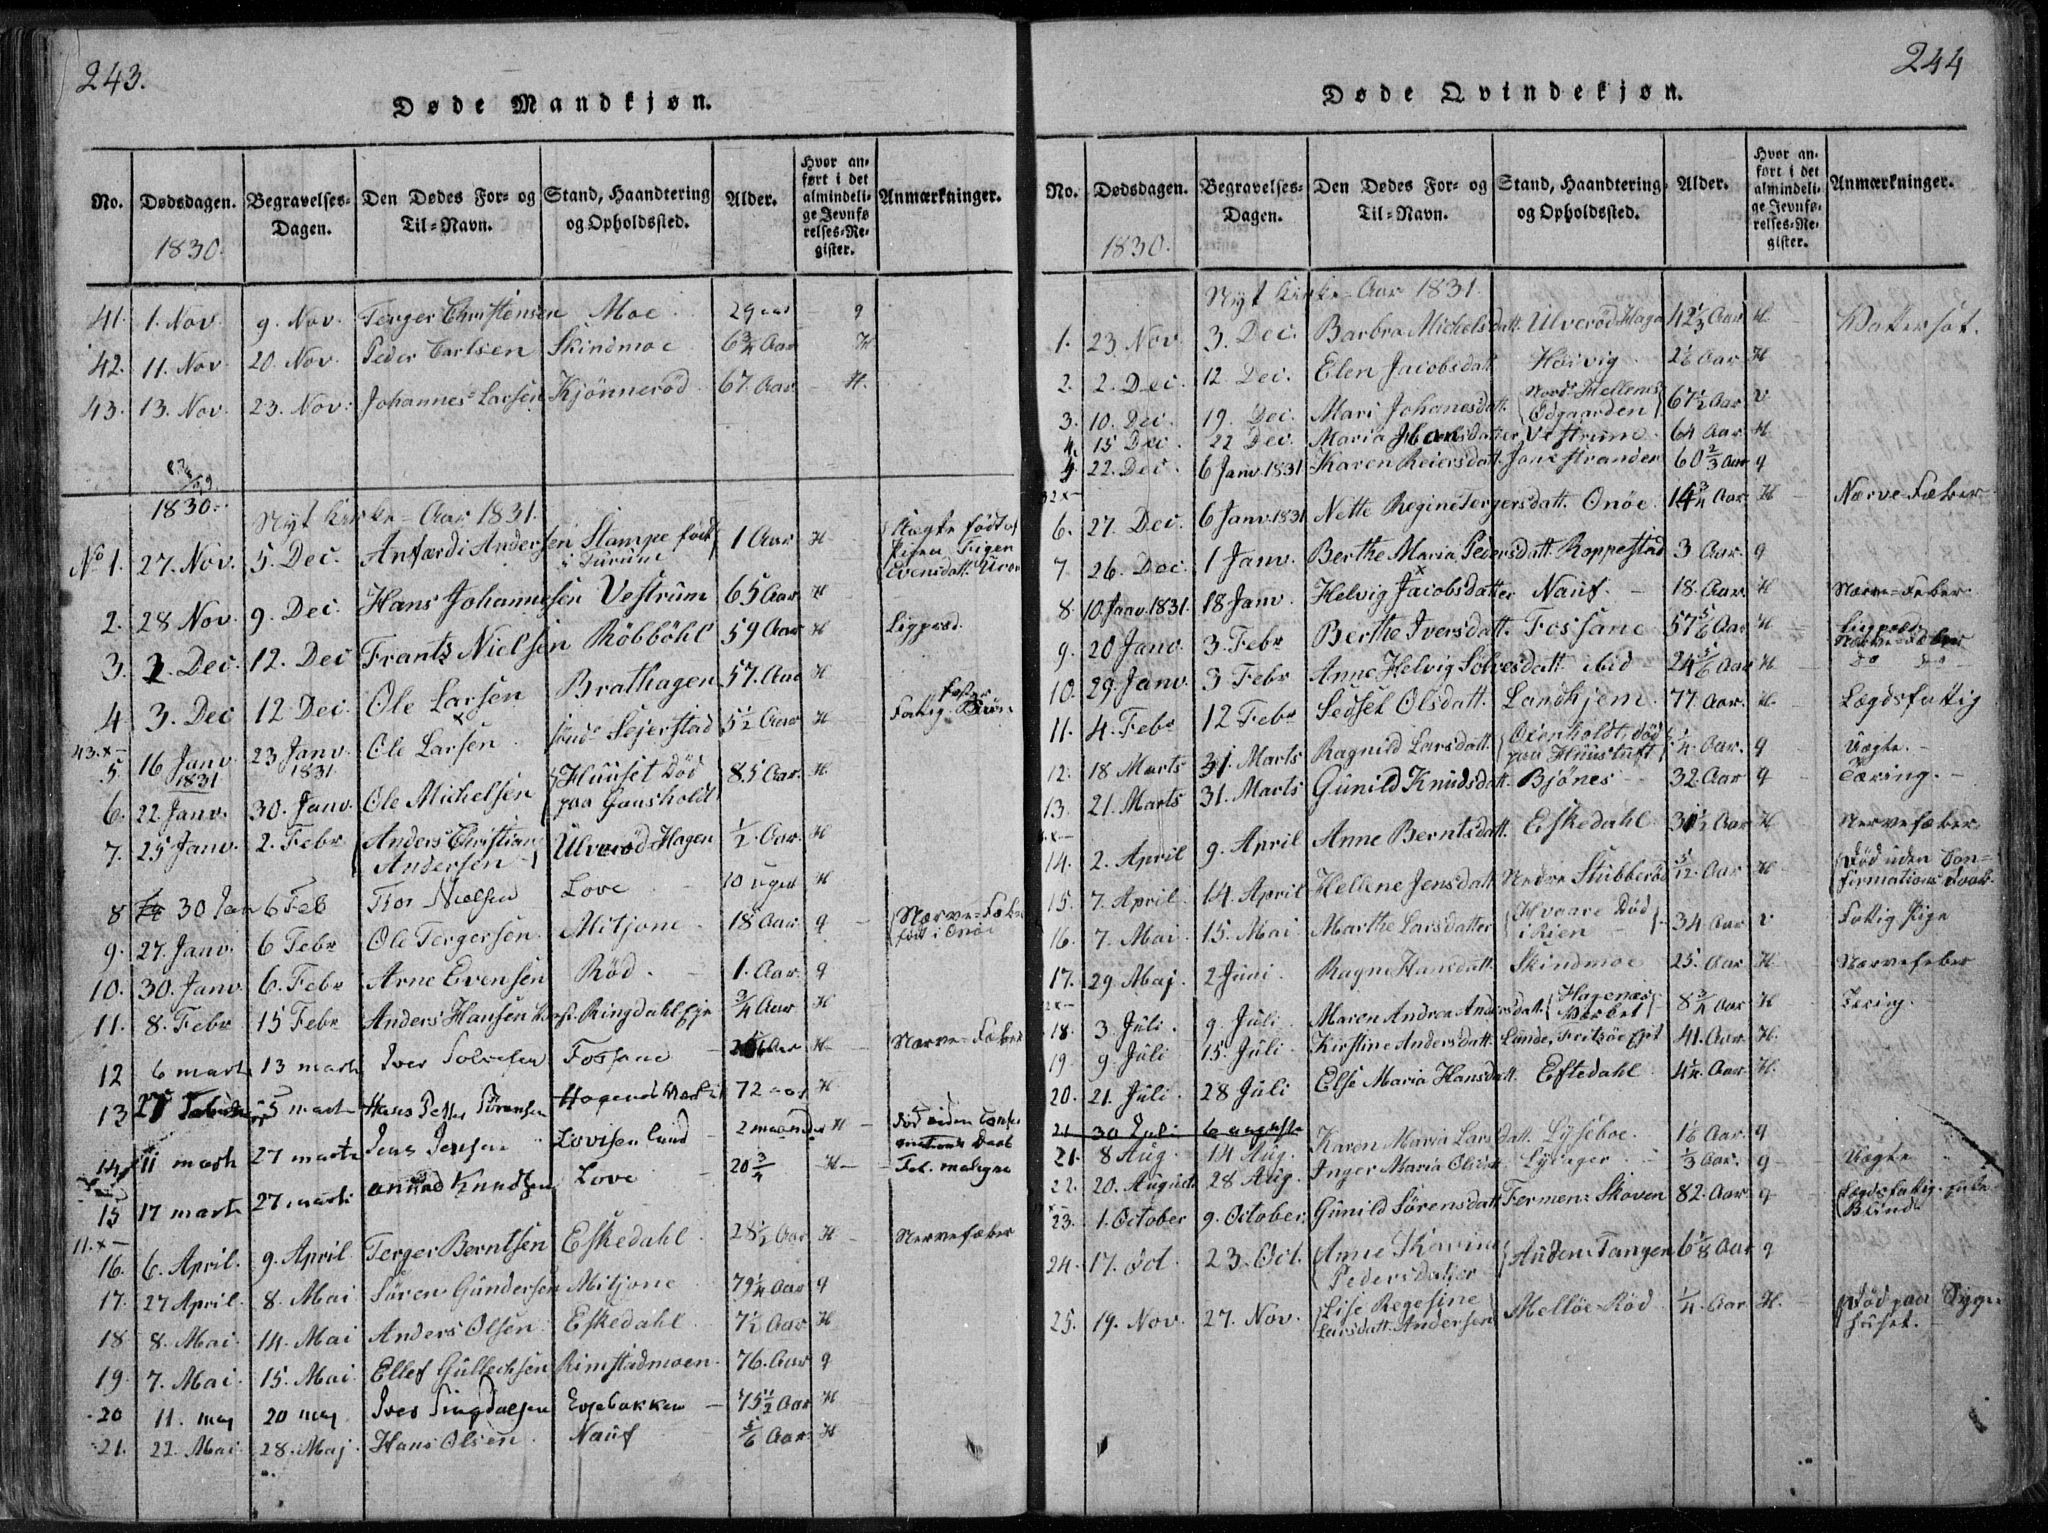 243.
Døde Mandkjøn.
No. Dødsdagen. Begravelses-Dagen. Den Dødes For- og Til-Navn. Stand, Haandtering og Opholdssted. Alder. Hvor anført i det almindelige Jevnførelses-Register. Anmærkninger.
1830.
41. 1. Nov. 9. Nov. Terger Christensen Moe 29 aar 9
42. 11. Nov 20 Nov. Peder Carlsen Skindmoe 6 3/4 Aar H
43. 13. Nov. 23. Nov: Johannes Larsen Kjönneröd 67. Aar H.
1830.
Nyt Kirke-Aar 1831.
No 1. 27. Nov. 5. Dec. Anfærdi Andersen Stampe født i Furum 1 Aar H Uægte født af Pigen
2. 28 Nov 9. Dec. Hans Johannesen Vestrum 65 Aar H
3. 2. Dec. 12. Dec Frants Nielsen Röbböhl 59 Aar H
4 3. Dec 12 Dec. Ole Larsen Brathagen 57. Aar H
43.x-
5. 16 Janv 1831 23 Janv. 1831. Ole Larsen Sejerstad 5 1/2 Aar H Fattig
6. 22. Janv. 30. Janv. Ole Michelsen Huuset Död paa Gausholdt 85 Aar. H
7. 25 Janv. 2. Febr Anders Christian Andersen Ulveröd-Hagen 1/2 Aar. H
8 30 Jan 6 Feb Thor Nielsen Love 10 uger H
9. 27. Janv. 6 Febr Ole Tergersen Mitjone 18 Aar. 9 Nærve-Feber født i Onöe
10. 30. Janv 6. Febr Arne Evensen Röd. 1. Aar. 9
11. 8. Febr 15 Febr Anders Hansen Ringdahl 3/4 Aar H
12 6 marts 13 marts Iver Solvesen Fossane Aar H Nærve-Feber
13 5 marts Hans Petter Sörensen Hagenes 72 aar H
14 11 marts 27 marts Jens Jensen Lovisenlund 2 maaneder H Död uden Daab
15 17 marts 27 marts Amund Knudsen Love 20 3/4 H
11.x-
16. 6. April. 9. April. Terger Berntsen Eskedahl 28 1/2 Aar H Nervefæber
17. 27 April. 8. Mai Sören Gundersen Mitjone 79 1/4 Aar 9
18 8. Mai. 14. Mai Anders Olsen Eskedahl 7 1/2 Aar H
19. 7. Mai. 15. Mai. Ellef Gullichsen Rimstadmoen. 76. Aar 9
20 11. maj 20 maj Iver Evjebakken 75 1/2 Aar H
21. 22. Mai. 28. Maj. Hans Olsen. Nauf 5/6 Aar. H
244
Døde Qvindekjøn.
No. Dødsdagen. Begravelses-Dagen. Den Dødes For- og Til-Navn. Stand, Haandtering og Opholdssted. Alder. Hvor anført i det almindelige Jevnførelses-Register. Anmærkninger.
1830.
Nyt Kirke-Aar 1831.
1. 23 Nov. 3. Dec. Barbra Michelsdatt. Ulveröd Hage 42 1/3 Aar H Vattersot.
2. 2. Dec. 12 Dec. Elen Jacobsdatt Höivig 2 1/6 Aar H
3. 10. Dec. 19. Dec. Mari Johanesdatt. Nord-Hellenes Ödgaarden 67 1/2 Aar v
4. 15 Dec. 22 Dec. Maria Vestrum. 64 Aar H
5. 22. Dec. 6 Janv. 1831 Karen Reiersdatt. Janestranden 60 2/3 Aar 9
6. 27. Dec. 6 Janv. 1831 Nette Regine Tergersdatt. Onöe. 14 3/4 Aar. H Nærve-Fæber
7 26. Dec. 1 Janv. Berthe Maria Pedersdatt. Roppestad 3 Aar. 9
8. 10. Janv. 1831. 18 Janv. Helvig Jacobsdatter Nauf. 18. Aar. H Nærve-Feber
9. 20 Janv. 3. Febr Berthe Iversdatt. Fossane 57 5/6 Aar H
10. 29. Janv. 3 Febr Anne Helvig Solvesdatt. ibid 24 5/6 Aar H do do
11. 4. Febr 12 Febr Sedsel Olsdatt. Landhjem. 77. Aar. H Lægdsfattig
12. 18 Marts 31. Marts Ragnild Larsdatt. Oxenholdt, död paa Huustuft 1/4. Aar. 9 Uægte.
13. 21. Marts 31. Marts Gunild Knudsdatt. Bjönes 32 Aar 9 Tæring.
14. 2. April 9. April Anne Berntsdatt. Eskedahl 31 1/2 Aar H Nervefæber
15. 7. April. 14. April Hellene Jensdatt. Nedre Stubberöd 5/12 Aar H Död uden Confirmations Daab
16. 7. Mai 15. Mai Marthe Larsdatter Hvaare Död i Rien 34 Aar v Fattig Pige
17. 29. Maj. 2 Juni Ragne Hansdatt. Skindmoe 25. Aar H Nærvefeber
18. 3. Juli. 9. Juli Maren Andrea Andersdatt. Hagenæs Værket 8 3/4 Aar H Tæring.
19. 9. Juli 15. Juli Kirstine Andersdatt. Lunde, Fritzöe Ejet 41. Aar. H.
20. 21. Juli 28 Juli Else Maria Hansdatt. Eftedahl 4 1/4. Aar. H.
21 30 Juli 6 auguste
21. 8 Aug. 14 Aug. Karen Maria Larsdatt. Lyseboe. 1 1/6 Aar. 9
22. 20. August 28 Aug. Inger Maria Olsdatt 1/3 Aar. 9 Uægte
23. 1. October 9. October. Gunild Sörensdatt. Fermen-Skoven 82. Aar 9 Lægdsfattig. Blind
24. 17. Oct. 23. Oct. Anne Karine Pedersdatter Auden-Tangen 6 1/8 Aar 9
25. 19. Nov. 27. Nov. Lise Regesine Larsdatt. Andersen Mellöe-Röd 1/4. Aar H. Död paa Sygehuset.